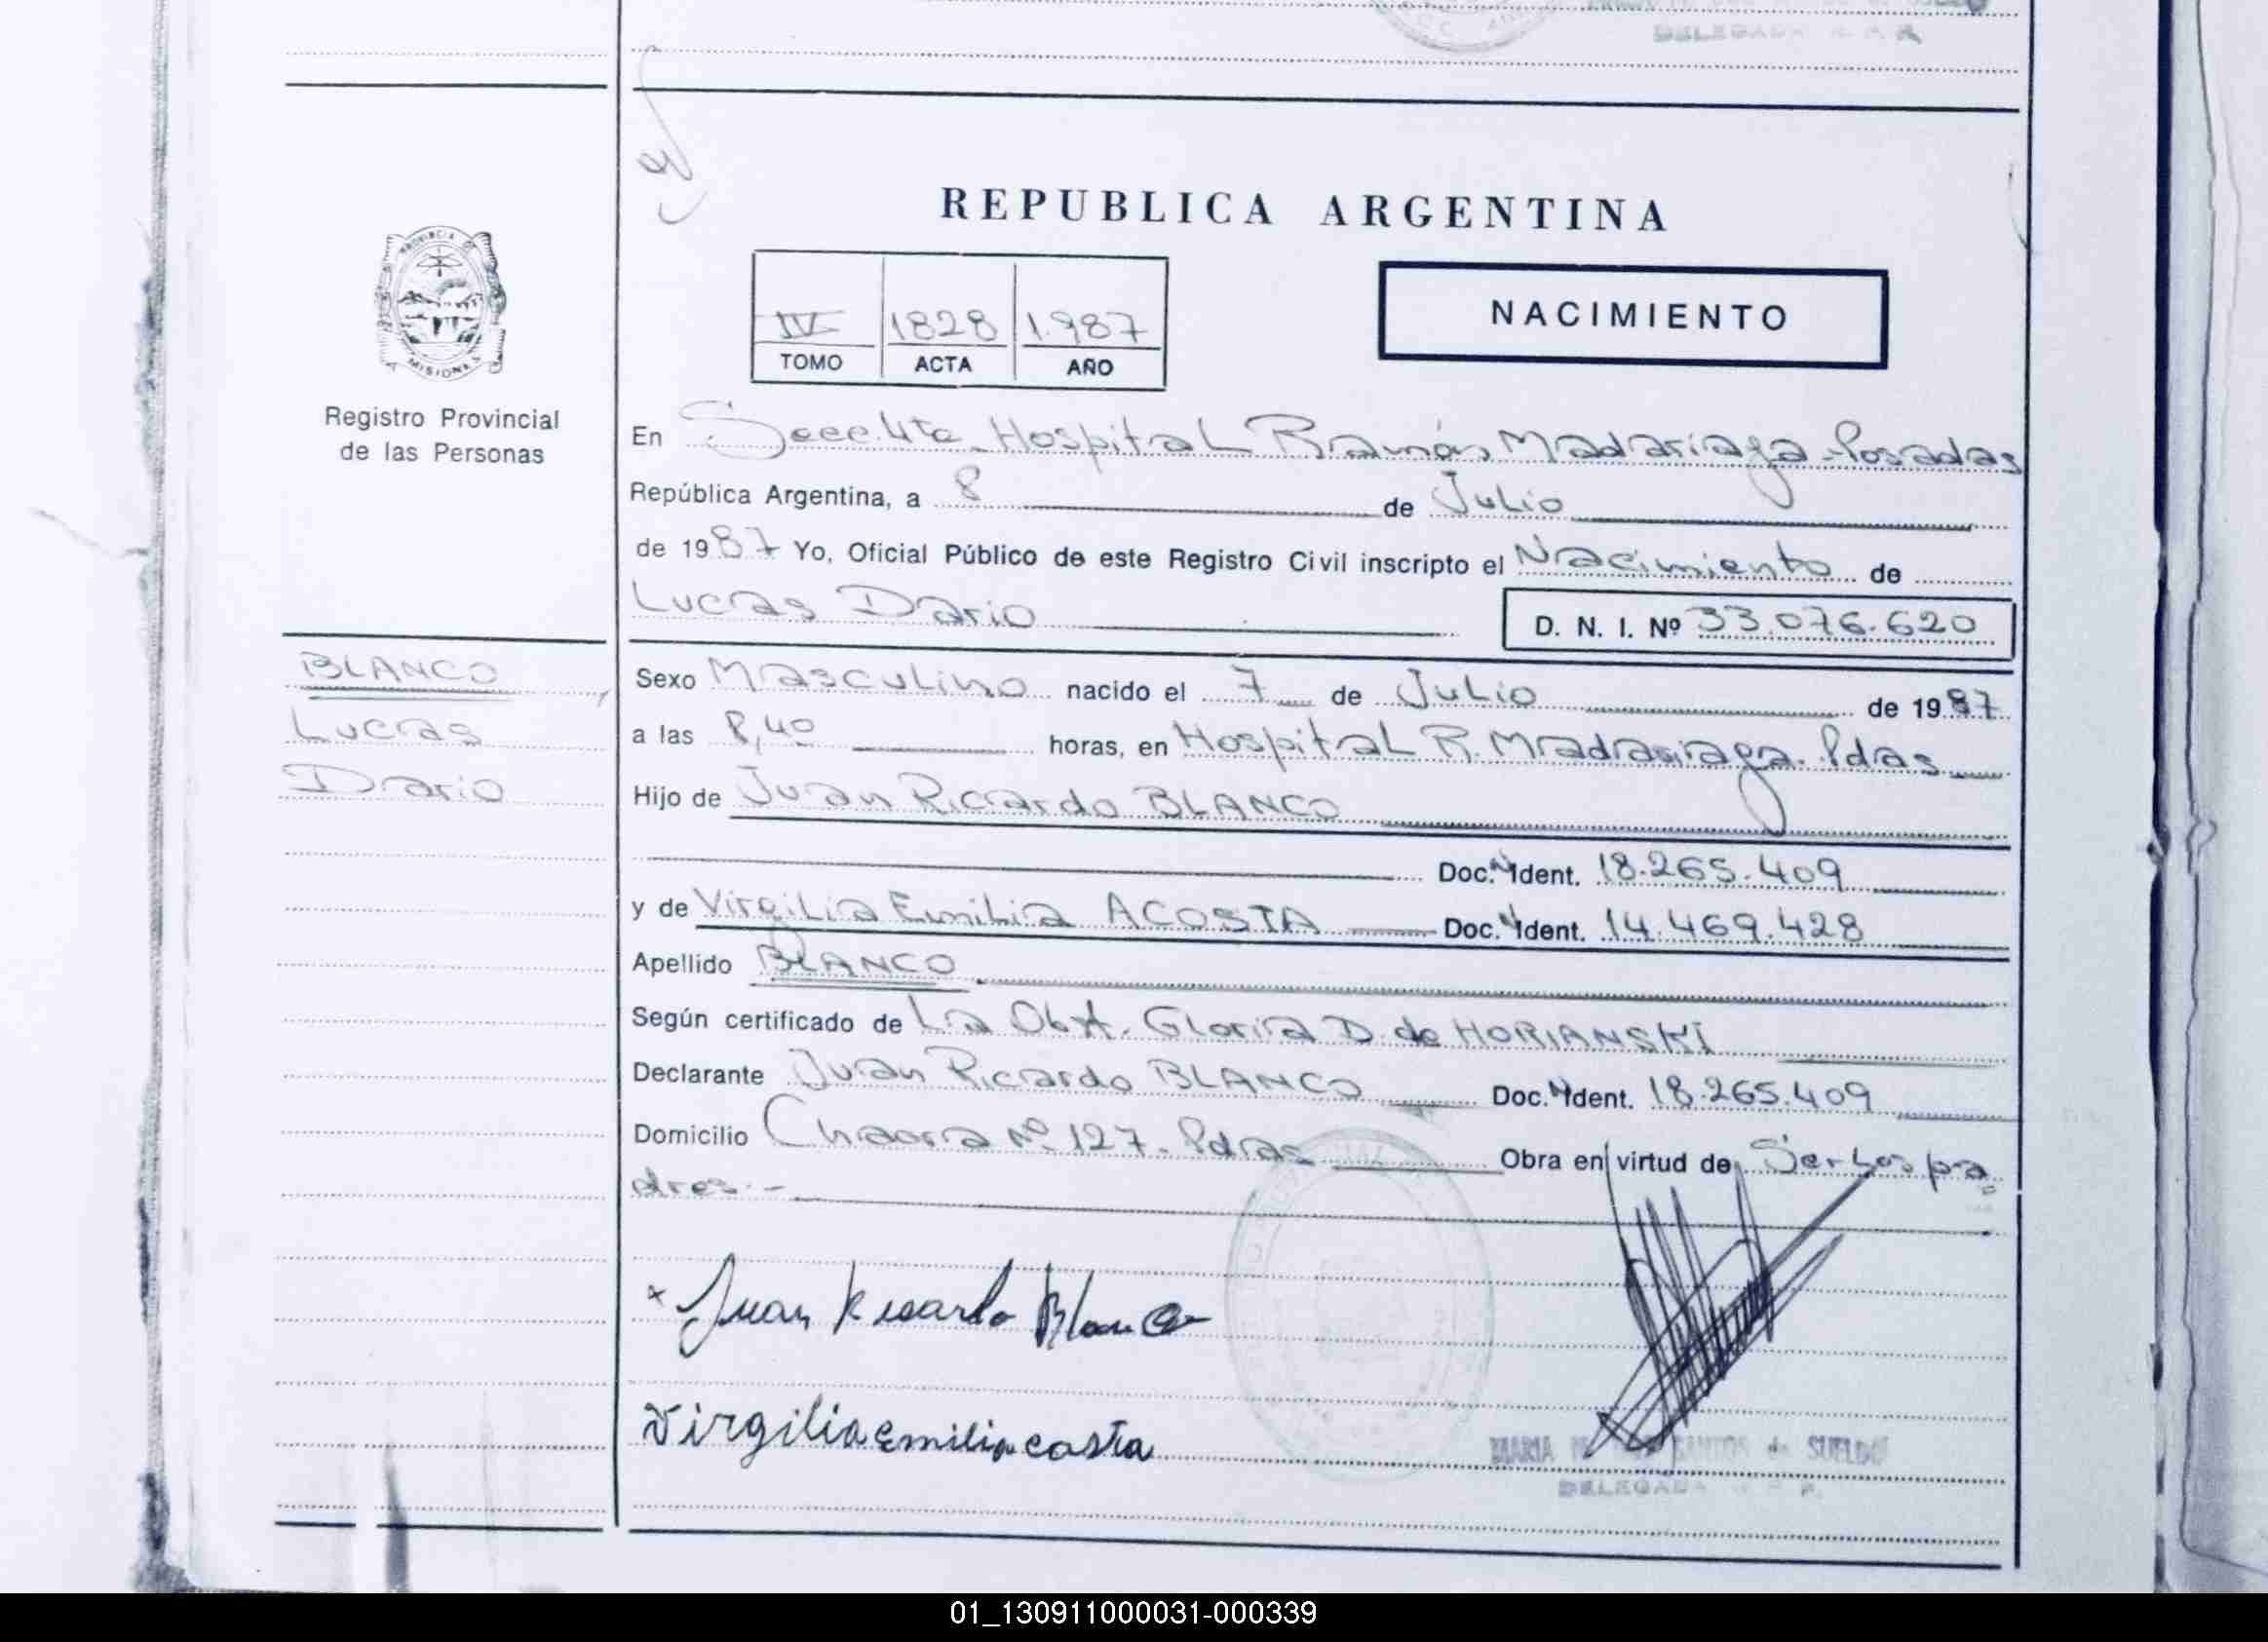 DELEGADA
REPUBLICA ARGENTINA
PROVINCIA DE
MISIONES
Registro Provincial
de las Personas
IV 1828 1.987
TOMO ACTA AÑO
NACIMIENTO
En Secc. 4ta. Hospital Ramón Madariaga - Posadas
República Argentina, a 8 de Julio
de 1987 Yo, Oficial Público de este Registro Civil inscripto el Nacimiento de
Lucas Dario D. N. I. Nº 33.076.620
BLANCO
Lucas
Dario
Sexo Masculino nacido el 7 de Julio de 1987
a las 8,40 horas, en Hospital R. Madariaga. Pdas
Hijo de Juan Ricardo BLANCO
Doc. N Ident. 18.265.409
y de Virgilia Emilia ACOSTA Doc. N Ident. 14.469.428
Apellido BLANCO
Según certificado de La Obst. Gloria D. de HORIANSKI
Declarante Juan Ricardo BLANCO Doc. N Ident. 18.265.409
Domicilio Chacra Nº 127. Pdas Obra en virtud de Ser Los pa
dres.-
x Juan Ricardo Blanco
Virgilia Emilia costa
MARIA SANTOS de SUELDO
DELEGADA
01_130911000031-000339